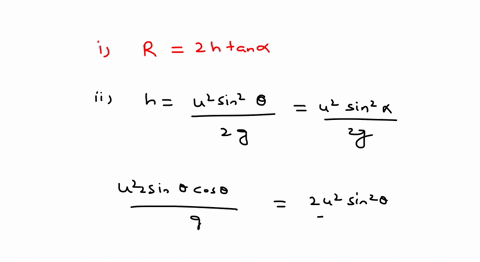 i) R = 2h tanα
ii) h = u² sin² θ / 2g = u² sin² α / 2g
u² 2 sin θ cos θ / g = 2u² sin² θ